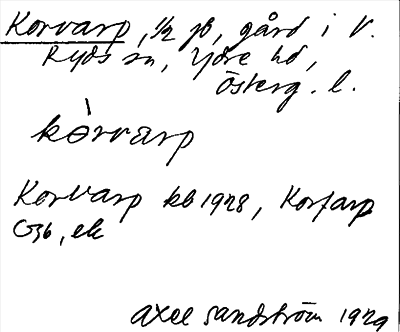 Korvarp, 1/2 jb, gård i V.
Ryds sn, Ydre hd,
Österg. l.
kòrvarp
Korvarp kb 1928, Korfarp
G36, ek
Axel Sandström 1929